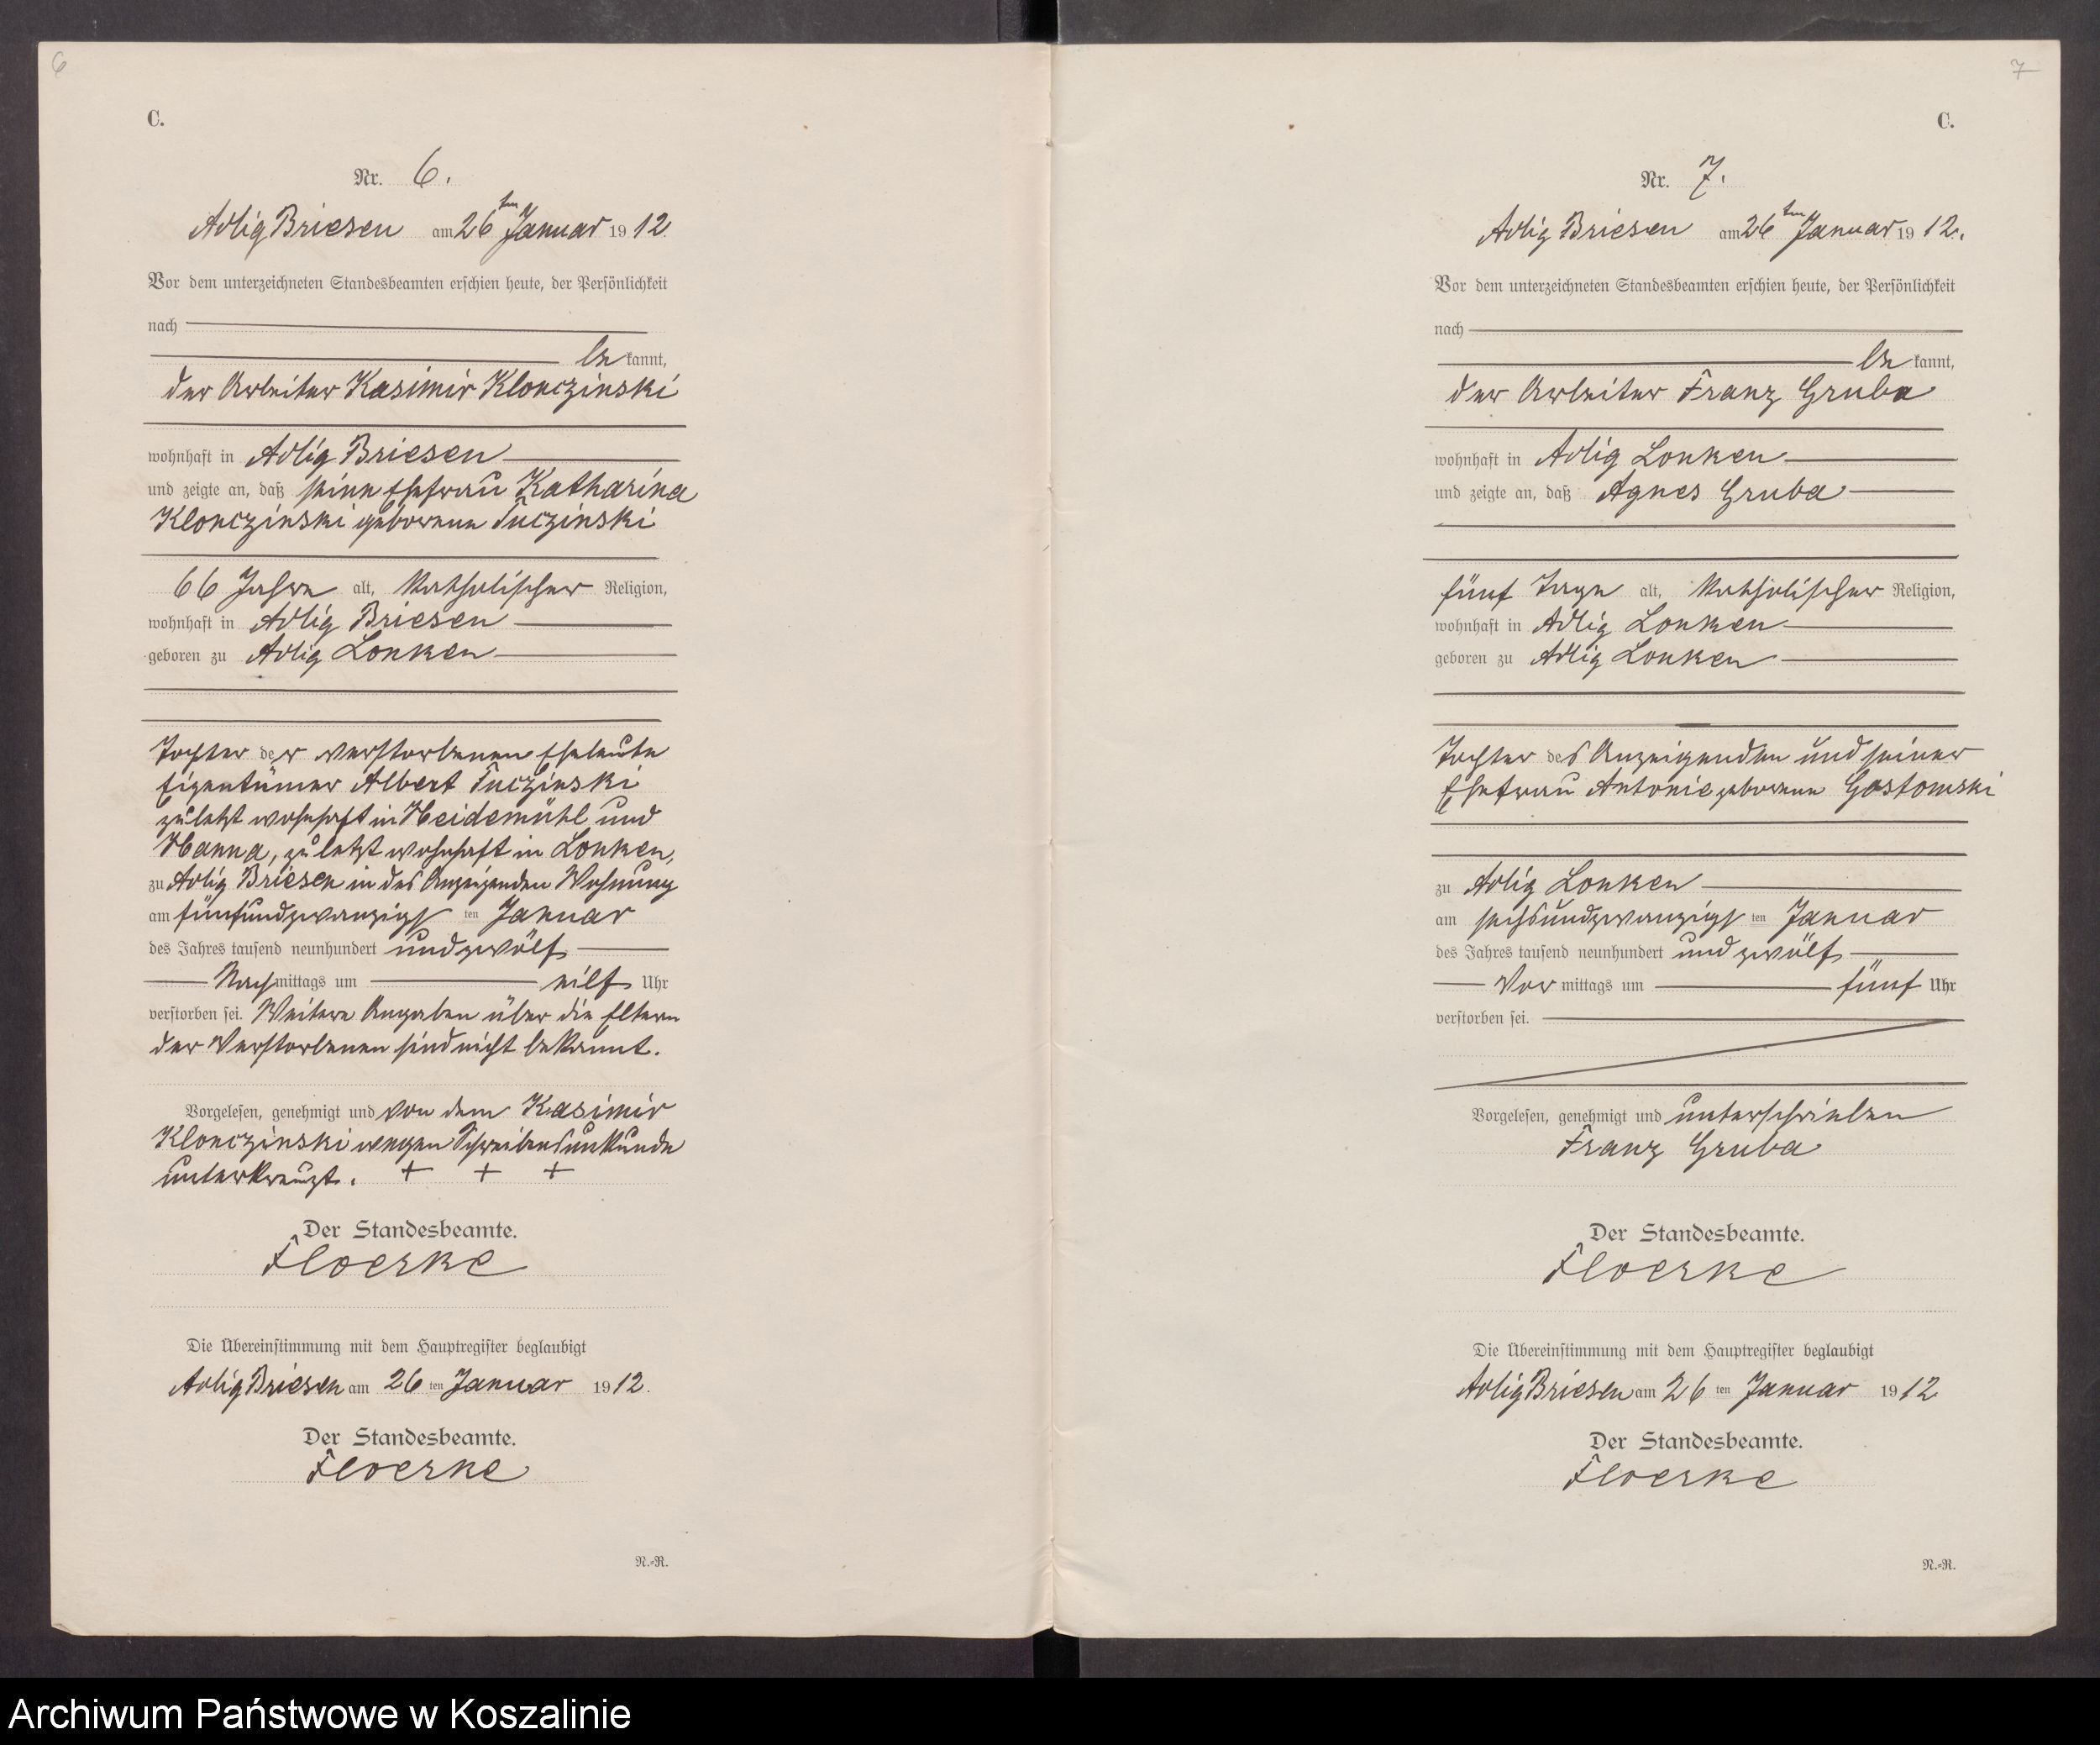 6
C.
Nr. 6.
Adlig Briesen am 26ten Januar 1912.
Vor dem unterzeichneten Standesbeamten erschien heute, der Persönlichkeit
nach
be kannt,
der Arbeiter Kasimir Klonczinski
wohnhaft in Adlig Briesen
und zeigte an, daß seine Ehefrau Katharina
Klonczinski geborene Tuczinski
66 Jahre alt, katholischer Religion,
wohnhaft in Adlig Briesen
geboren zu Adlig Lonken
Tochter der verstorbenen Eheleute
Eigentümer Albert Tuczinski
zuletzt wohnhaft in Heidemühl und
Hanna, zuletzt wohnhaft in Lonken,
zu Adlig Briesen in des Anzeigenden Wohnung
am fünfundzwanzigsten Januar
des Jahres tausend neunhundert und zwölf
Nachmittags um eilf Uhr
verstorben sei. Weitere Angaben über die Eltern
der Verstorbenen sind nicht bekannt.
Vorgelesen, genehmigt und von dem Kasimir
Klonczinski wegen Schreibensunkunde
unterkreuzt. + + +
Der Standesbeamte.
Floerke
Die Übereinstimmung mit dem Hauptregister beglaubigt
Adlig Briesen am 26ten Januar 1912.
Der Standesbeamte.
Floerke
N.-R.
7
C.
Nr. 7.
Adlig Briesen am 26ten Januar 1912.
Vor dem unterzeichneten Standesbeamten erschien heute, der Persönlichkeit
nach
be kannt,
der Arbeiter Franz Gruba
wohnhaft in Adlig Lonken
und zeigte an, daß Agnes Gruba
fünf Tage alt, katholischer Religion,
wohnhaft in Adlig Lonken
geboren zu Adlig Lonken
Tochter des Anzeigenden und seiner
Ehefrau Antonie geborene Gostomski
zu Adlig Lonken
am sechsundzwanzigsten Januar
des Jahres tausend neunhundert und zwölf
Vormittags um fünf Uhr
verstorben sei.
Vorgelesen, genehmigt und unterschrieben
Franz Gruba
Der Standesbeamte.
Floerke
Die Übereinstimmung mit dem Hauptregister beglaubigt
Adlig Briesen am 26ten Januar 1912
Der Standesbeamte.
Floerke
N.-R.
Archiwum Państwowe w Koszalinie